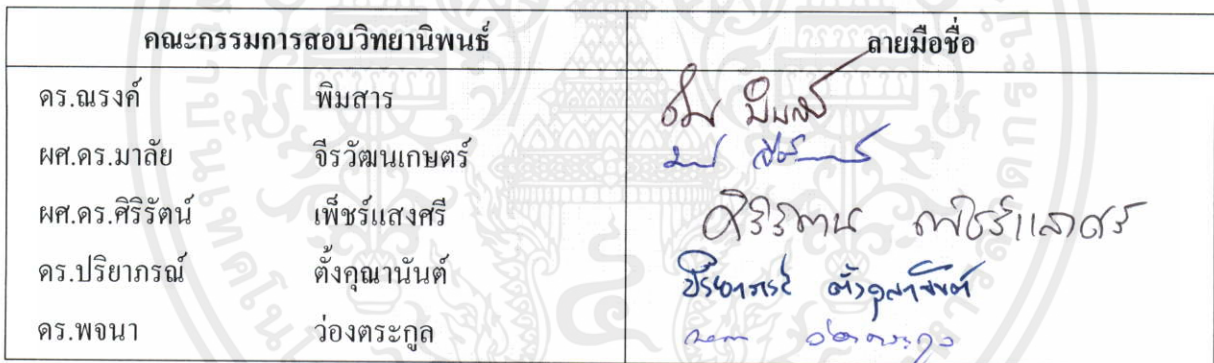 คณะกรรมการสอบวิทยานิพนธ์ ลายมือชื่อ
ดร.ณรงค์ พิมสาร
ผศ.ดร.มาลัย จีรวัฒนเกษตร์
ผศ.ดร.ศิริรัตน์ เพ็ชร์แสงศรี ศิริรัตน์ เพ็ชร์แสงศรี
ดร.ปริยาภรณ์ ตั้งคุณานันต์ ปริยาภรณ์ ตั้งคุณานันต์
ดร.พจนา ว่องตระกูล